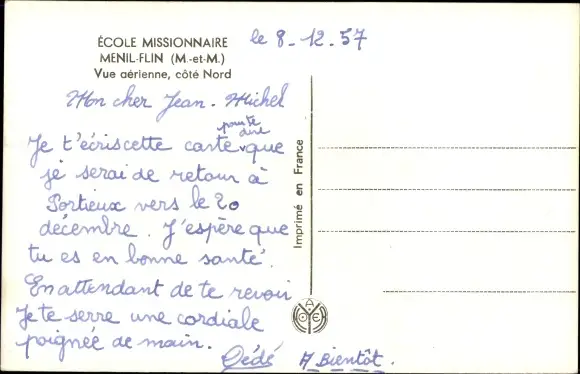 ÉCOLE MISSIONNAIRE
MENIL-FLIN (M.-et-M.)
Vue aérienne, côté Nord
le 8-12.57
Mon cher Jean-Michel
pour te
dire
Je t'écris cette carte que
je serai de retour à
Portieux vers le 20
décembre. J'espère que
tu es en bonne santé.
En attendant de te revoir
Je te serre une cordiale
poignée de main.
Dédé A Bientôt.
Imprimé en France